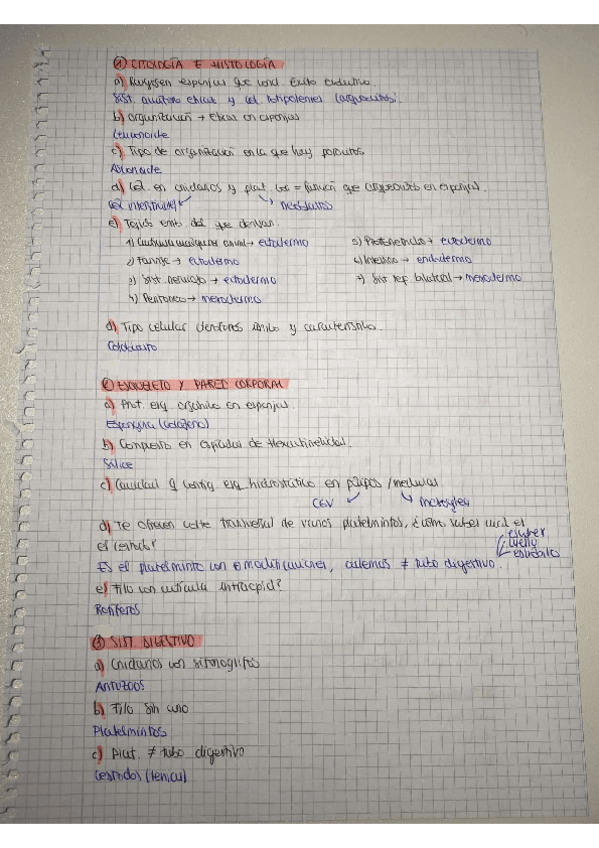 ① CITOLOGÍA E HISTOLOGÍA
a) esponjas que cond. éxito evolutivo.
Sist. acuífero eficaz y cél. totipotentes (arqueocitos).
b) organización → eficaz en esponjas
Leuconoide
c) Tipo de organización en la que hay porocitos.
Asconoide
d) Cél. en cnidarios y plat. con = función que arqueocitos en esponjas.
Cél intersticial neoblastos
e) Tejido emb. del que derivan.
1) Cutícula cualquier animal → ectodermo
2) Faringe → ectodermo
3) Sist. nervioso → ectodermo
4) Peritoneo → mesodermo
5) Protonefridio → ectodermo
6) Intestino → endodermo
7) Sist rep. bilateral → mesodermo
d) Tipo celular ctenóforos único y característico.
Coloblasto
② ESQUELETO Y PARED CORPORAL
a) Prot. esq. orgánico en esponjas.
Espongina (colágeno)
b) Compuesto en espículas de Hexactinelidas.
Sílice
c) Cavidad q constig esq hidrostático en pólipos / medusas
CGV mesoglea
d) Te ofrecen corte trasversal de varios platelmintos, ¿cómo sabes cual es
el cestodo?
escólex
cuello
estróbilo
Es el platelminto con modificaciones, además ≠ tubo digestivo.
e) Filo con cutícula intraepid?
Rotíferos
③ SIST. DIGESTIVO
a) Cnidarios con sifonoglifos
ANTOZOOS
b) Filo sin ano
Platelmintos
c) Plat. ≠ tubo digestivo
Cestodos (tenias)